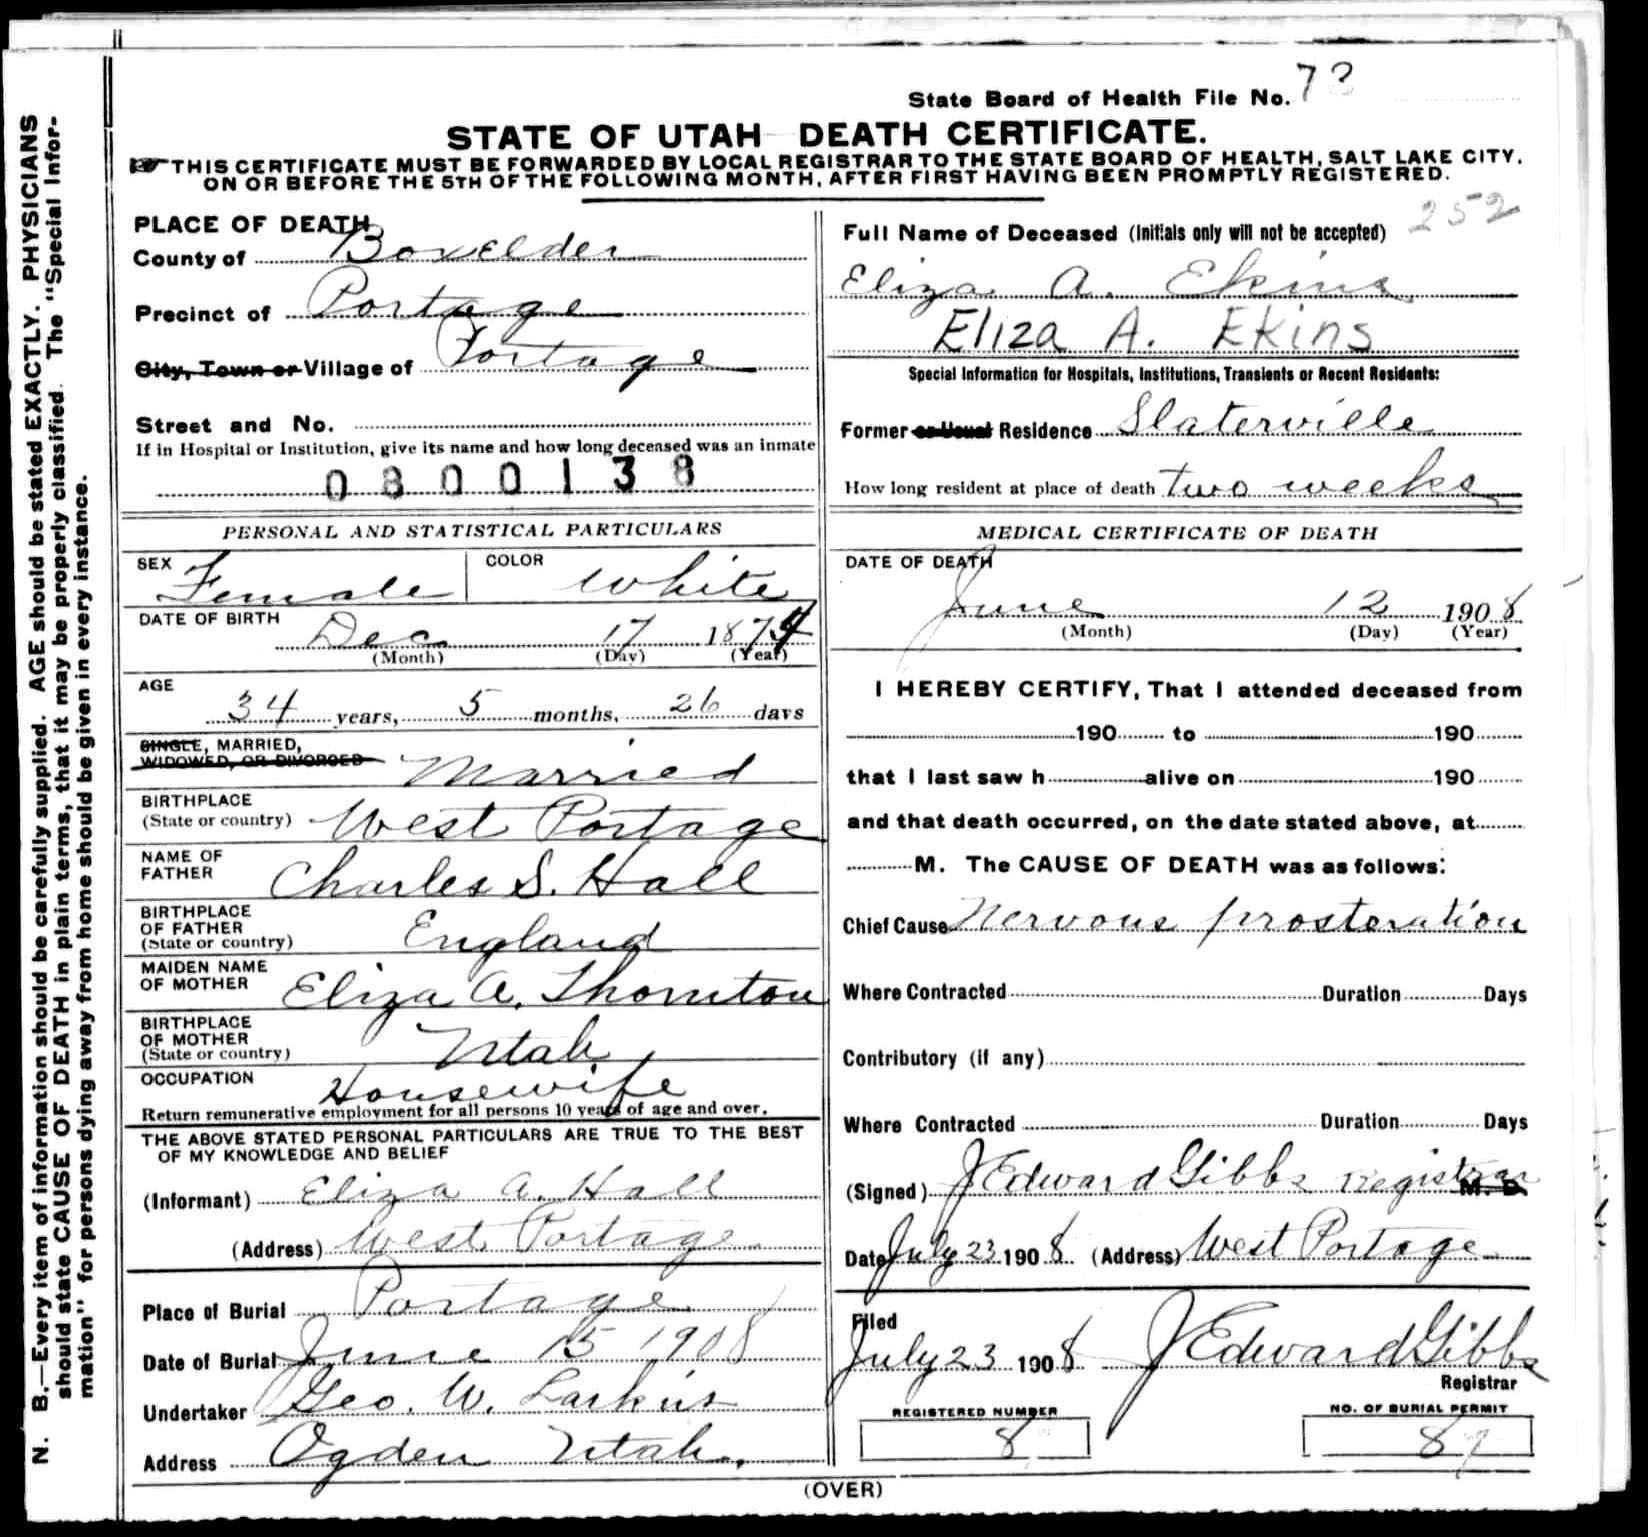 N. B.—Every item of information should be carefully supplied. AGE should be stated EXACTLY. PHYSICIANS
should state CAUSE OF DEATH in plain terms, that it may be properly classified. The "Special Infor-
mation" for persons dying away from home should be given in every instance.
State Board of Health File No. 73
STATE OF UTAH DEATH CERTIFICATE.
THIS CERTIFICATE MUST BE FORWARDED BY LOCAL REGISTRAR TO THE STATE BOARD OF HEALTH, SALT LAKE CITY,
ON OR BEFORE THE 5TH OF THE FOLLOWING MONTH, AFTER FIRST HAVING BEEN PROMPTLY REGISTERED.
252
PLACE OF DEATH
County of Boxelder
Precinct of Portage
City, Town or Village of Portage
Street and No.
If in Hospital or Institution, give its name and how long deceased was an inmate
0800138
Full Name of Deceased (Initials only will not be accepted)
Eliza A. Ekins
Eliza A. Ekins
Special Information for Hospitals, Institutions, Transients or Recent Residents:
Former or Usual Residence Slaterville
How long resident at place of death two weeks
PERSONAL AND STATISTICAL PARTICULARS
SEX Female COLOR White
DATE OF BIRTH Dec 17 1874
(Month) (Day) (Year)
AGE
34 years, 5 months, 26 days
SINGLE, MARRIED,
WIDOWED, OR DIVORCED Married
BIRTHPLACE
(State or country) West Portage
NAME OF
FATHER Charles S. Hall
BIRTHPLACE
OF FATHER
(State or country) England
MAIDEN NAME
OF MOTHER Eliza A. Thornton
BIRTHPLACE
OF MOTHER
(State or country) Utah
OCCUPATION Housewife
Return remunerative employment for all persons 10 years of age and over.
THE ABOVE STATED PERSONAL PARTICULARS ARE TRUE TO THE BEST
OF MY KNOWLEDGE AND BELIEF
(Informant) Eliza A. Hall
(Address) West Portage
Place of Burial Portage
Date of Burial June 15 1908
Undertaker Geo. W. Larkin
Address Ogden Utah.
MEDICAL CERTIFICATE OF DEATH
DATE OF DEATH
June 12 1908
(Month) (Day) (Year)
I HEREBY CERTIFY, That I attended deceased from
190 to 190
that I last saw h alive on 190
and that death occurred, on the date stated above, at
M. The CAUSE OF DEATH was as follows:
Chief Cause Nervous prosteration
Where Contracted Duration Days
Contributory (if any)
Where Contracted Duration Days
(Signed) J Edward Gibbs Registrar M. D.
Date July 23 1908 (Address) West Portage
Filed
July 23 1908 J Edward Gibbs
Registrar
REGISTERED NUMBER
8
NO. OF BURIAL PERMIT
8
(OVER)